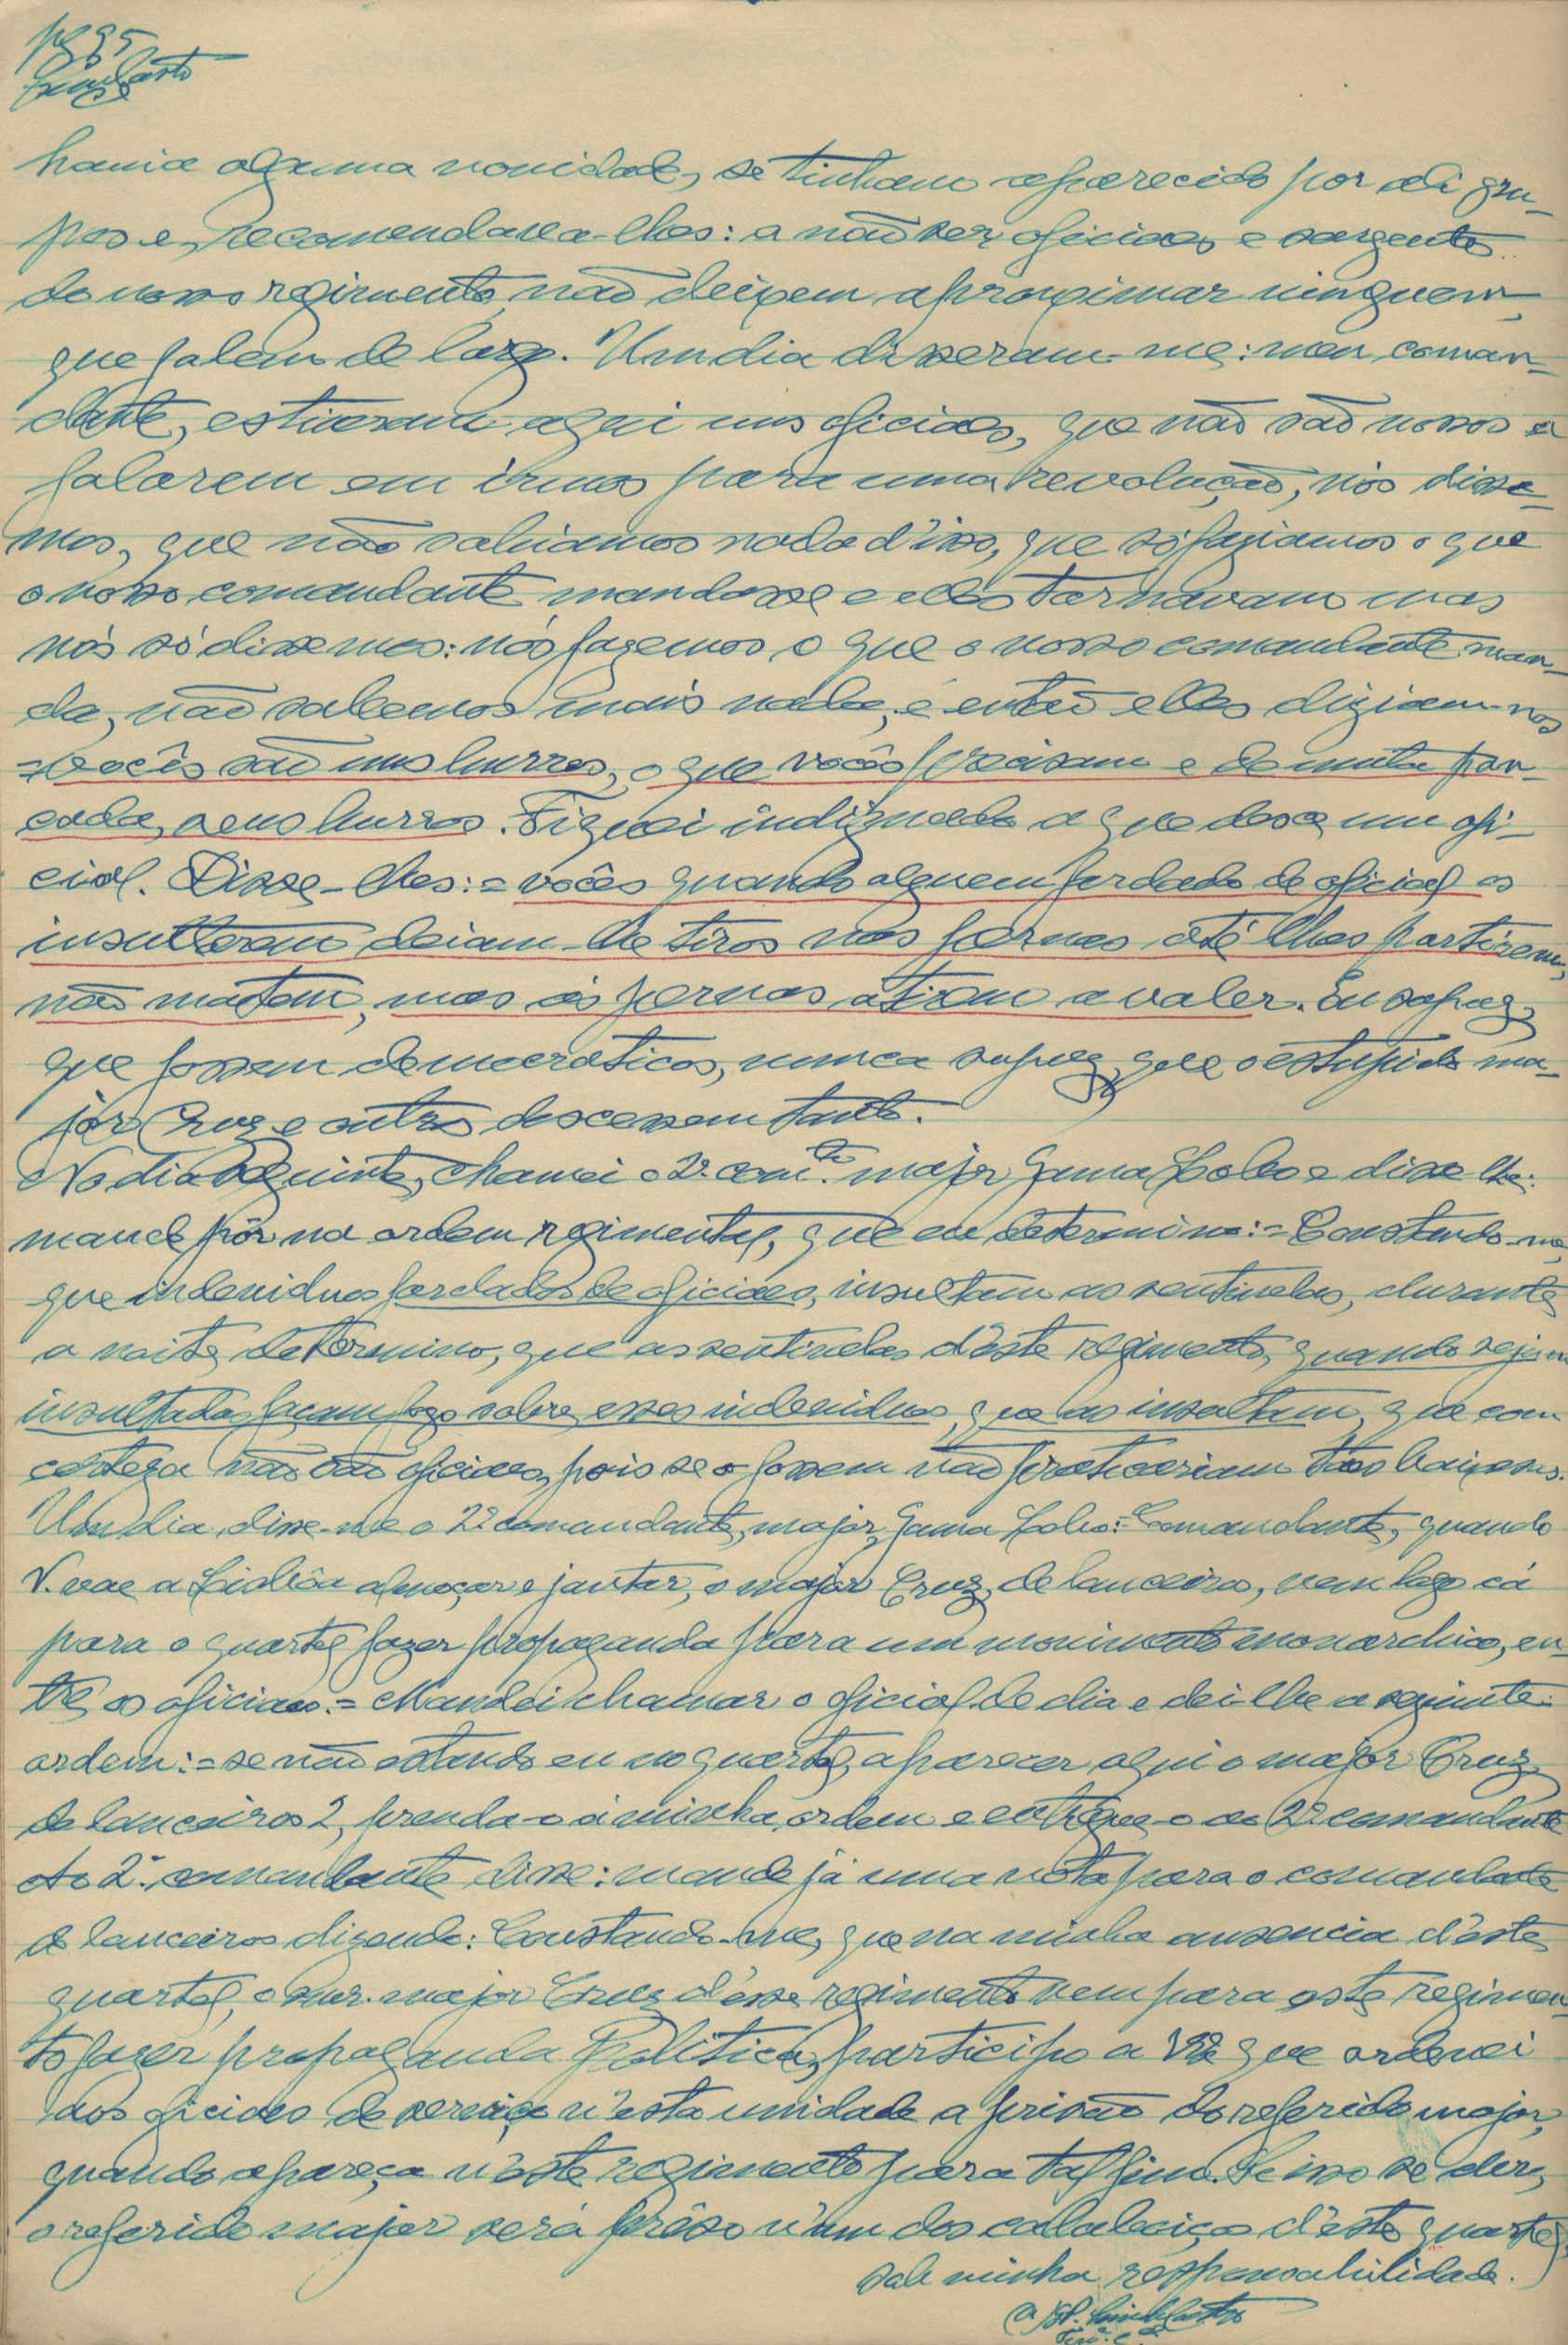 pg 95
havia alguma novidade, se tinham aparecido por ali gru-
pos e, recomendava-lhes: a não ser oficiaes e sargentos
do nosso regimento, não deixem aproximar ninguem,
que falem de largo. Um dia disseram-me: meu coman-
dante, estiveram aqui uns oficiaes, que não são nossos a
falarem em irmos para uma revolução, nós disse-
mos, que não sabiamos nada d'isso, que só faziamos o que
o nosso comandante mandasse e elles tornavam mas
nós só dissemos: nós fazemos o que o nosso comandante man-
da, não sabemos mais nada, e então elles diziam-nos
=vocês são uns burros, o que vocês precisam e de muita pan-
cada, seus burros. Fiquei indignado a que desce um ofi-
cial. Disse-lhes:=vocês quando alguem fardado de oficial os
insultarem deiam-lhe tiros nas pernas até lhas partirem,
não matem, mas ás pernas atirem a valer. Eu supuz,
que fossem democraticos, nunca supuz, que o estupido ma-
jor Cruz e outro descessem tanto.
No dia seguinte, chamei o 2º com.te major Gama Lobo e disse-lhe:
mande pôr na ordem regimental, que eu determino:=Constando-me,
que individuos fardados de oficiaes, insultam as sentinelas, durante
a noite, determino, que as sentinelas d'este regimento, quando sejam
insultadas façam fogo sobre esses individuos, que as insultam, que com
certeza não são oficiaes, pois se o fossem não praticariam tãos baixesas.
Um dia, disse-me o 2º comandante, major, Gama Lobo:=Comandante, quando
V. vae a Lisbôa almoçar e jantar, o major Cruz, de lanceiros, vem logo cá
para o quartel fazer propaganda para um movimento monarchico, en-
tre os oficiaes.=Mandei chamar o oficial de dia e dei-lhe a seguinte
ordem:=se não estando eu no quartel, aparecer aqui o major Cruz,
de lanceiros 2, prenda-o á minha ordem e entregue-o ao 2º comandante
Ao 2º. comandante disse: mande já uma nota para o comandante
de lanceiros dizendo: Constando-me, que na minha ausencia d'este
quartel, o snr. major Cruz d'esse regimento vem para este regimen-
to fazer propaganda Politica, participo a V. que ordenei
aos oficiaes de serviço n'esta unidade a prisão do referido major,
quando apareça n'este regimento para tal fim. Se isso se der,
o referido major será prêso n'um dos calabouços d'este quartel,
sob minha responsabilidade.